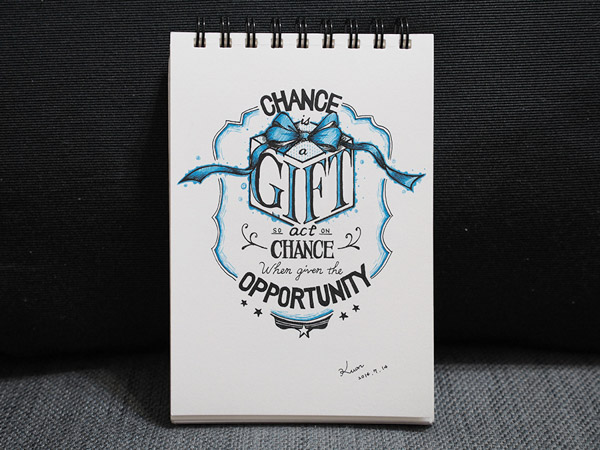 CHANCE
is
a
GIFT
SO act ON
CHANCE
When given the
OPPORTUNITY